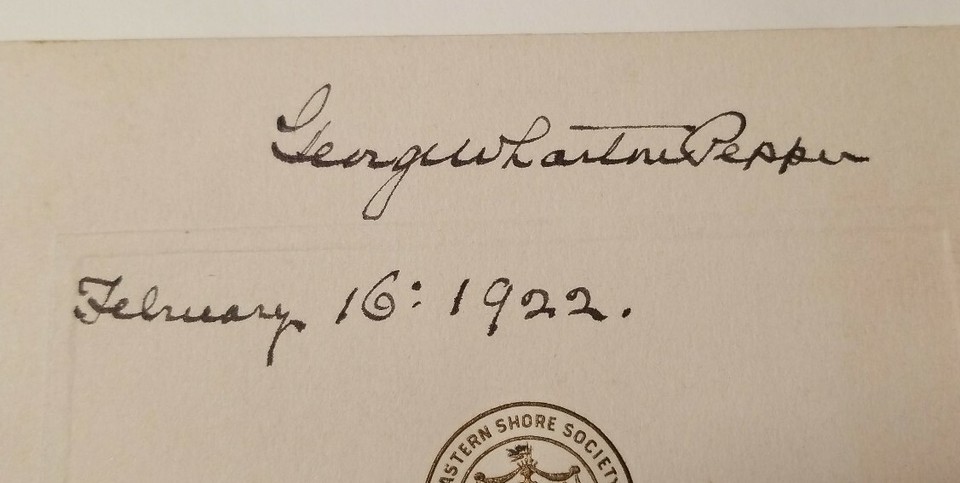 George Wharton Pepper
February 16: 1922.
ASTERN SHORE SOCIETY